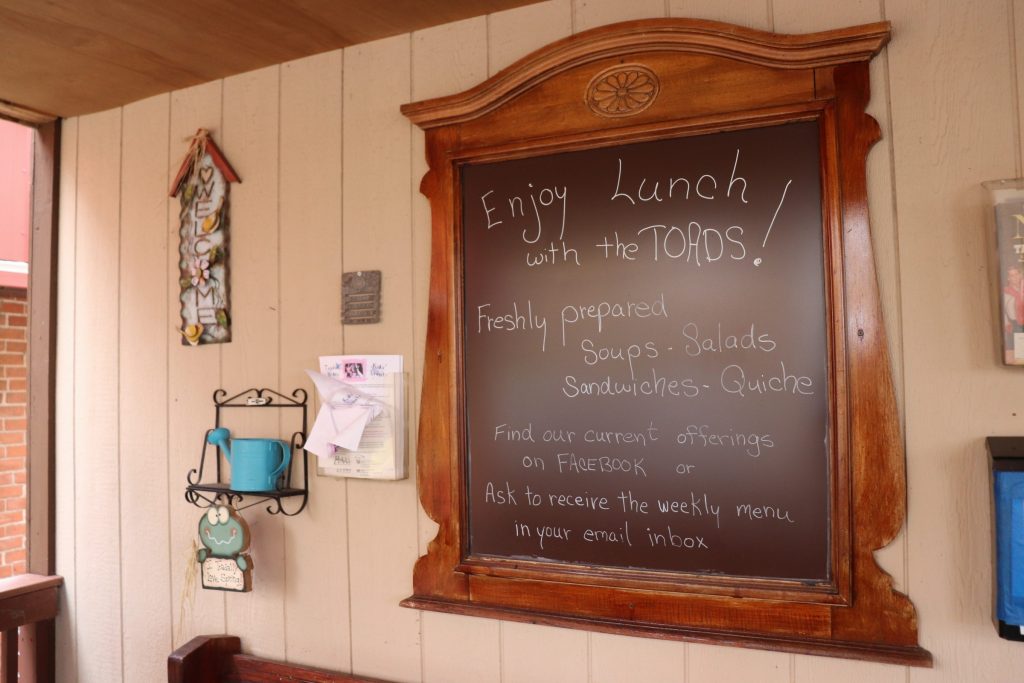 WELCOME
Enjoy Lunch
with the TOADS!
Freshly prepared
Soups - Salads
Sandwiches - Quiche
Find our current offerings
on FACEBOOK or
Ask to receive the weekly menu
in your email inbox